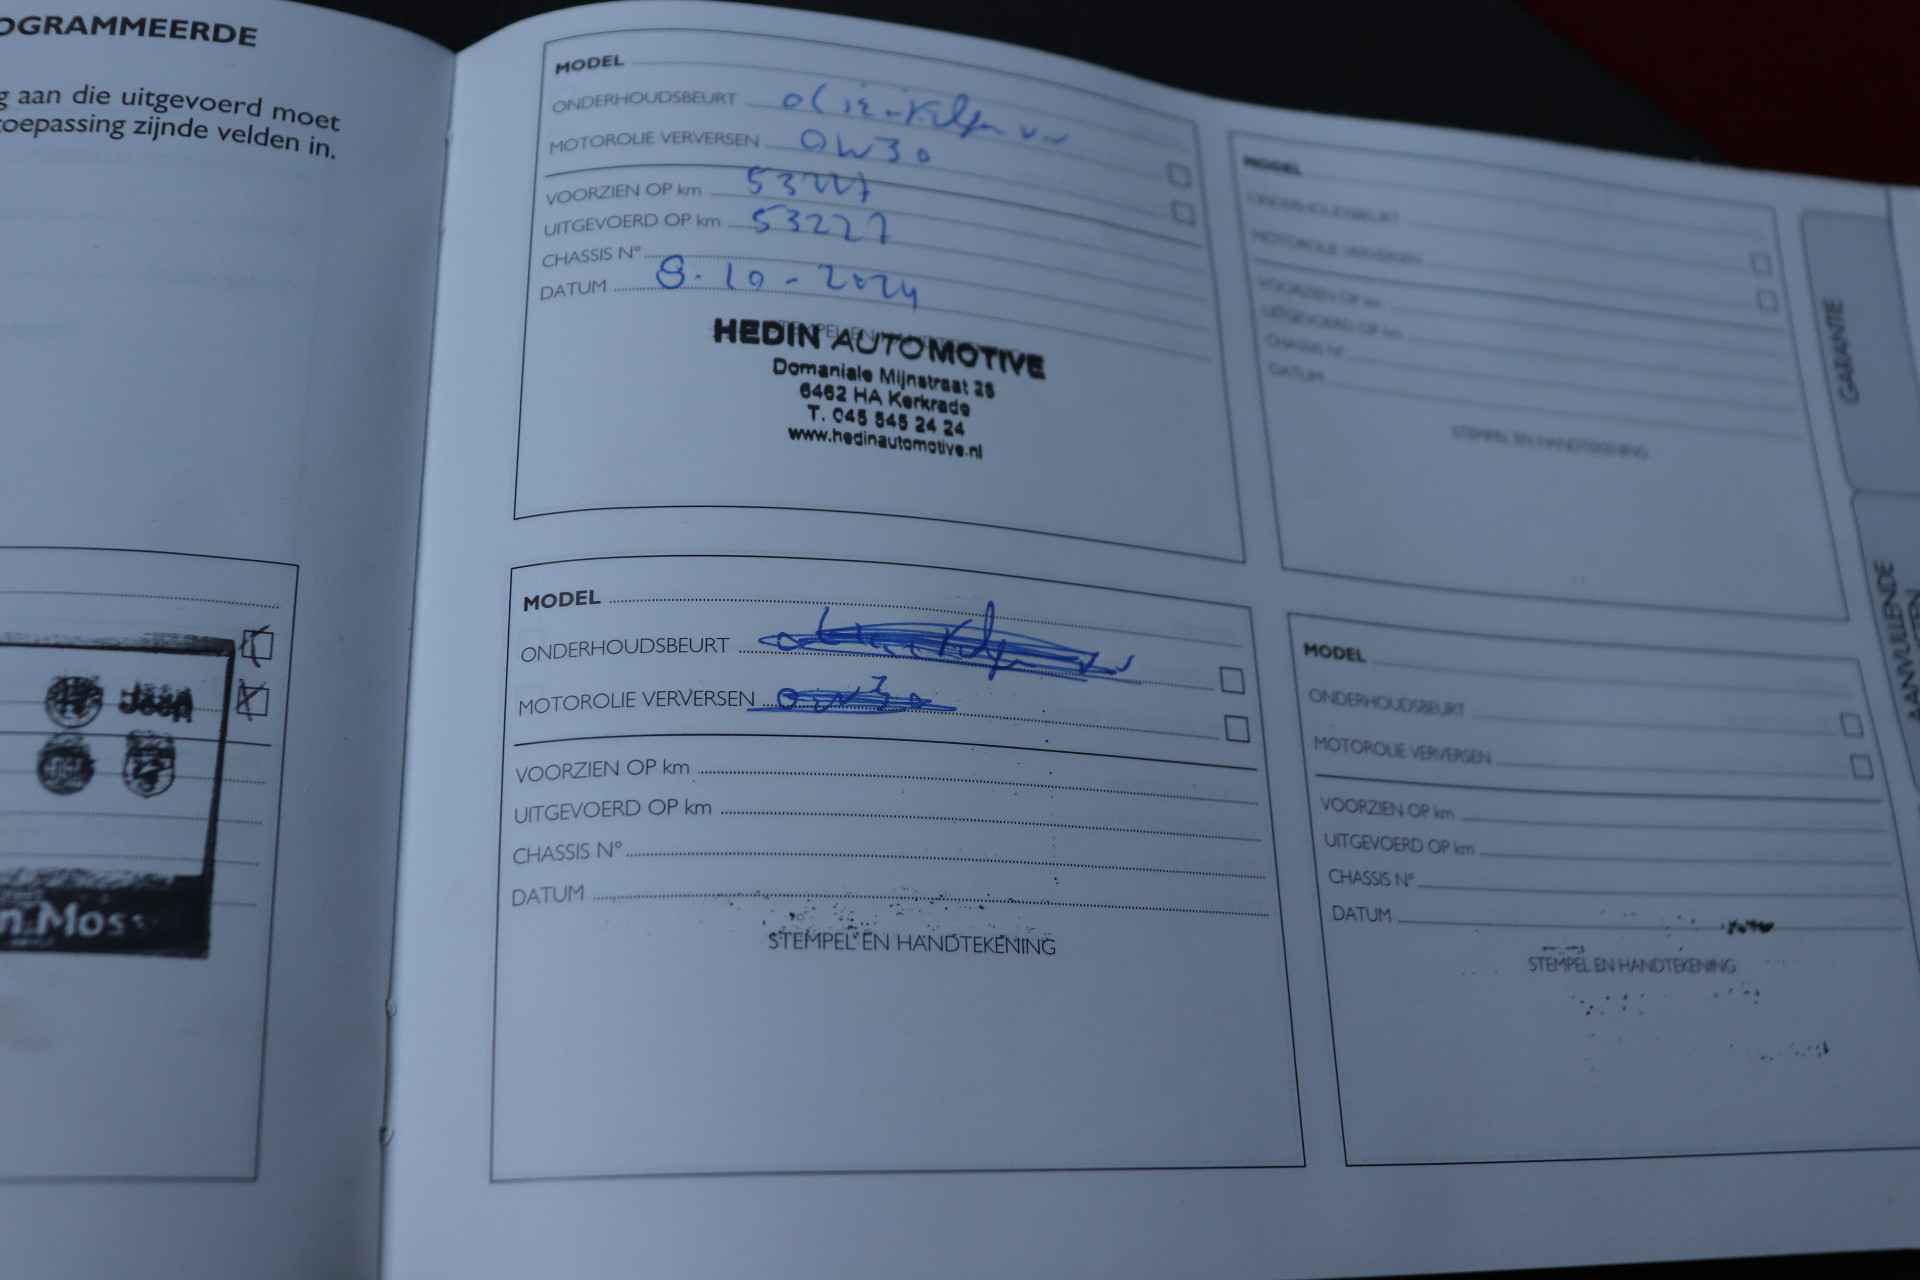 OGRAMMEERDE
g aan die uitgevoerd moet
toepassing zijnde velden in.
Jeep
n Moss
MODEL
ONDERHOUDSBEURT olie + filter vv
MOTOROLIE VERVERSEN 0W30
VOORZIEN OP km 53227
UITGEVOERD OP km 53227
CHASSIS N°
DATUM 8-10-2024
STEMPEL EN
HEDIN AUTOMOTIVE
Domaniale Mijnstraat 25
6462 HA Kerkrade
T. 045 545 24 24
www.hedinautomotive.nl
MODEL
ONDERHOUDSBEURT
MOTOROLIE VERVERSEN
VOORZIEN OP km
UITGEVOERD OP km
CHASSIS N°
DATUM
STEMPEL EN HANDTEKENING
MODEL
ONDERHOUDSBEURT
MOTOROLIE VERVERSEN 0W30
VOORZIEN OP km
UITGEVOERD OP km
CHASSIS N°
DATUM
STEMPEL EN HANDTEKENING
MODEL
ONDERHOUDSBEURT
MOTOROLIE VERVERSEN
VOORZIEN OP km
UITGEVOERD OP km
CHASSIS N°
DATUM
STEMPEL EN HANDTEKENING
GARANTIE
AANVULLENDE